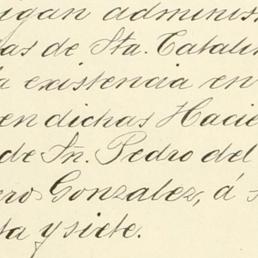 igan adminis
as de Sta. Catali
a existencia en
en dichas Hacie
de Sn. Pedro del
ero Gonzalez, á
ta y siete.